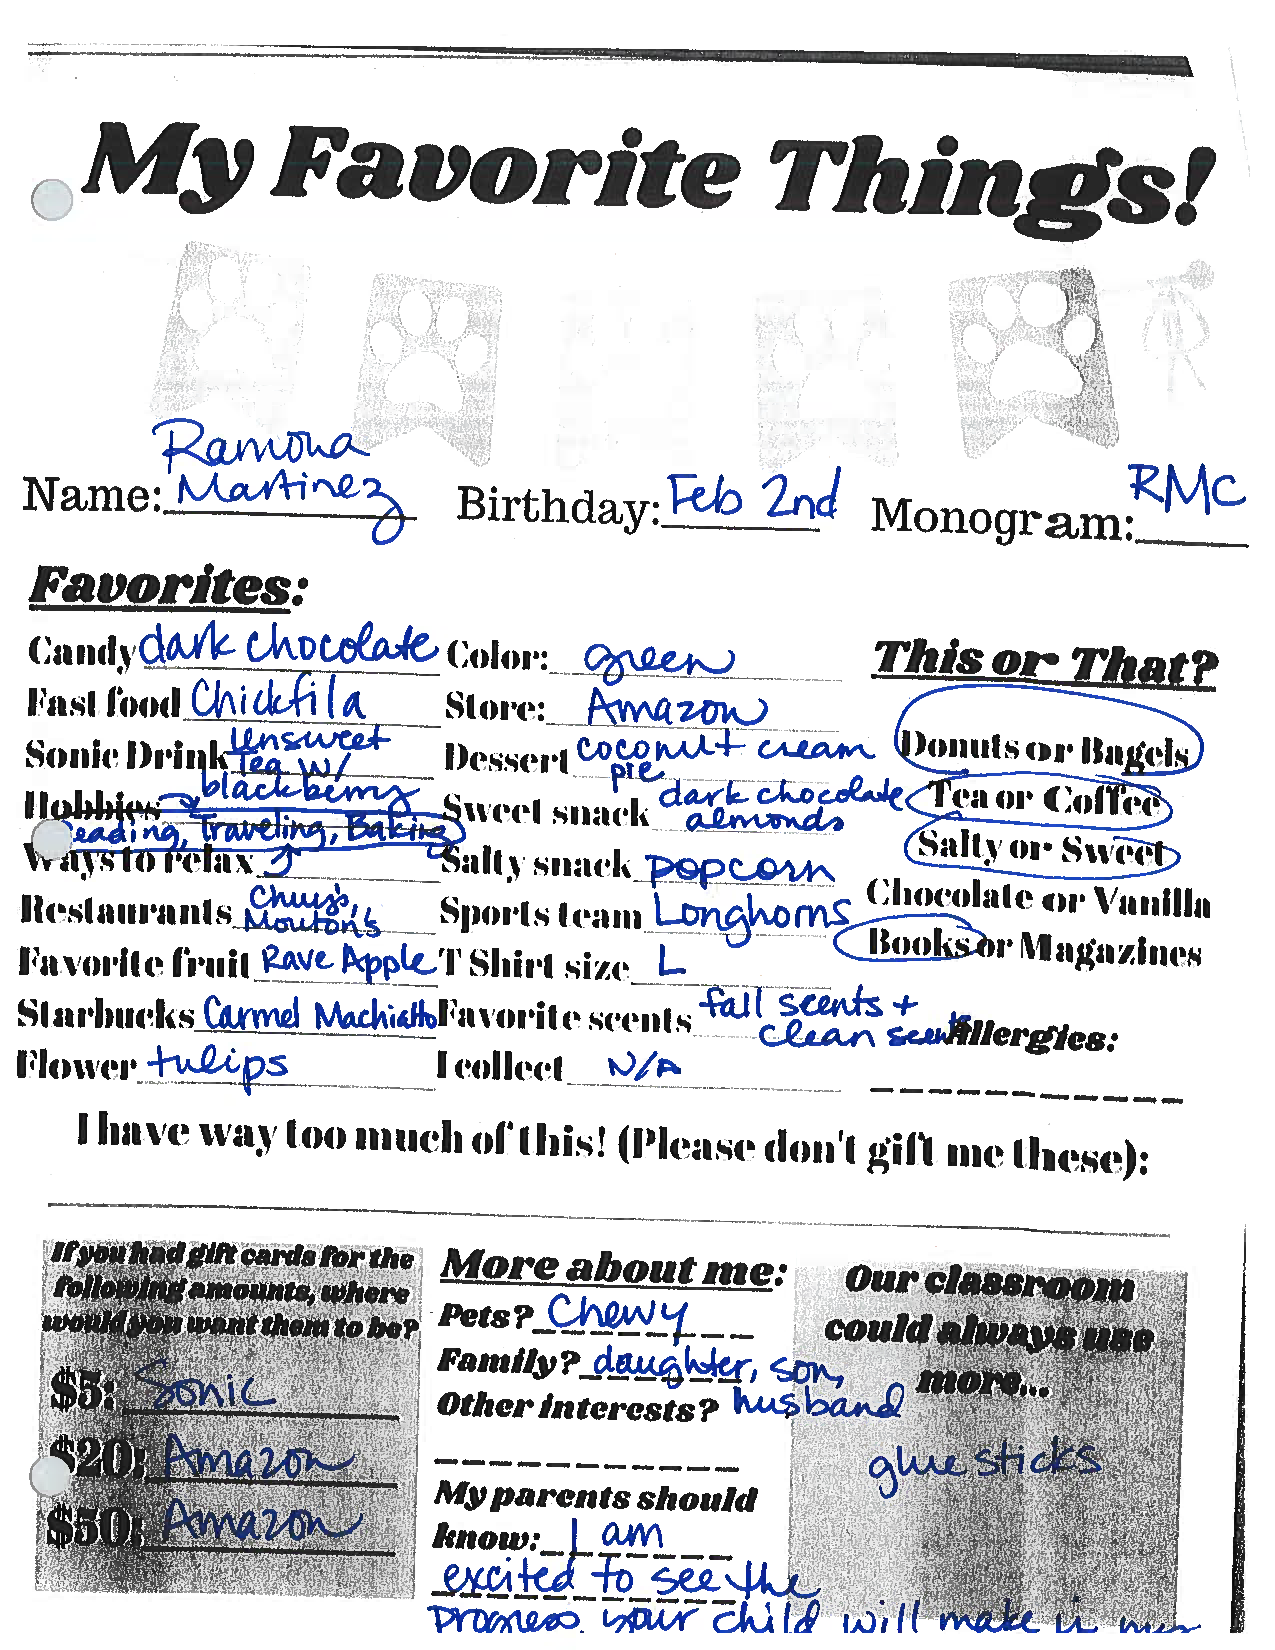 My Favorite Things!
Ramona
Name: Martinez Birthday: Feb 2nd Monogram: RMC
Favorites:
Candy dark chocolate Color: green This or That?
Fast food Chickfila Store: Amazon
Sonic Drink unsweet Tea w/ blackberry Dessert coconut cream pie Donuts or Bagels
Hobbies Sweet snack dark chocolate almonds Tea or Coffee
Reading, Traveling, Baking
Ways to relax Salty snack popcorn Salty or Sweet
Restaurants Chuy's, Mouton's Sports team Longhorns Chocolate or Vanilla
Favorite fruit Rave Apple T Shirt size L Books or Magazines
Starbucks Carmel Machiatto Favorite scents fall scents + clean scents Allergies:
Flower tulips I collect N/A
I have way too much of this! (Please don't gift me these):
If you had gift cards for the
following amounts, where
would you want them to be?
$5: Sonic
$20: Amazon
$50: Amazon
More about me:
Pets? Chewy
Family? daughter, son,
husband
Other interests?
My parents should
know: I am
excited to see the
progress your child will make in my
Our classroom
could always use
more...
glue sticks